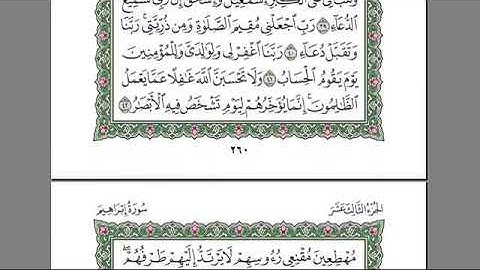 وَهَبَ لِي عَلَى ٱلْكِبَرِ إِسْمَٰعِيلَ وَإِسْحَٰقَ إِنَّ رَبِّي لَسَمِيعُ
ٱلدُّعَآءِ ٣٩ رَبِّ ٱجْعَلْنِي مُقِيمَ ٱلصَّلَوٰةِ وَمِن ذُرِّيَّتِي رَبَّنَا
وَتَقَبَّلْ دُعَآءِ ٤٠ رَبَّنَا ٱغْفِرْ لِي وَلِوَٰلِدَيَّ وَلِلْمُؤْمِنِينَ
يَوْمَ يَقُومُ ٱلْحِسَابُ ٤١ وَلَا تَحْسَبَنَّ ٱللَّهَ غَٰفِلًا عَمَّا يَعْمَلُ
ٱلظَّٰلِمُونَ إِنَّمَا يُؤَخِّرُهُمْ لِيَوْمٍ تَشْخَصُ فِيهِ ٱلْأَبْصَٰرُ ٤٢
٢٦٠
الجزء الثالث عشر سورة إبراهيم
مُهْطِعِينَ مُقْنِعِي رُءُوسِهِمْ لَا يَرْتَدُّ إِلَيْهِمْ طَرْفُهُمْ